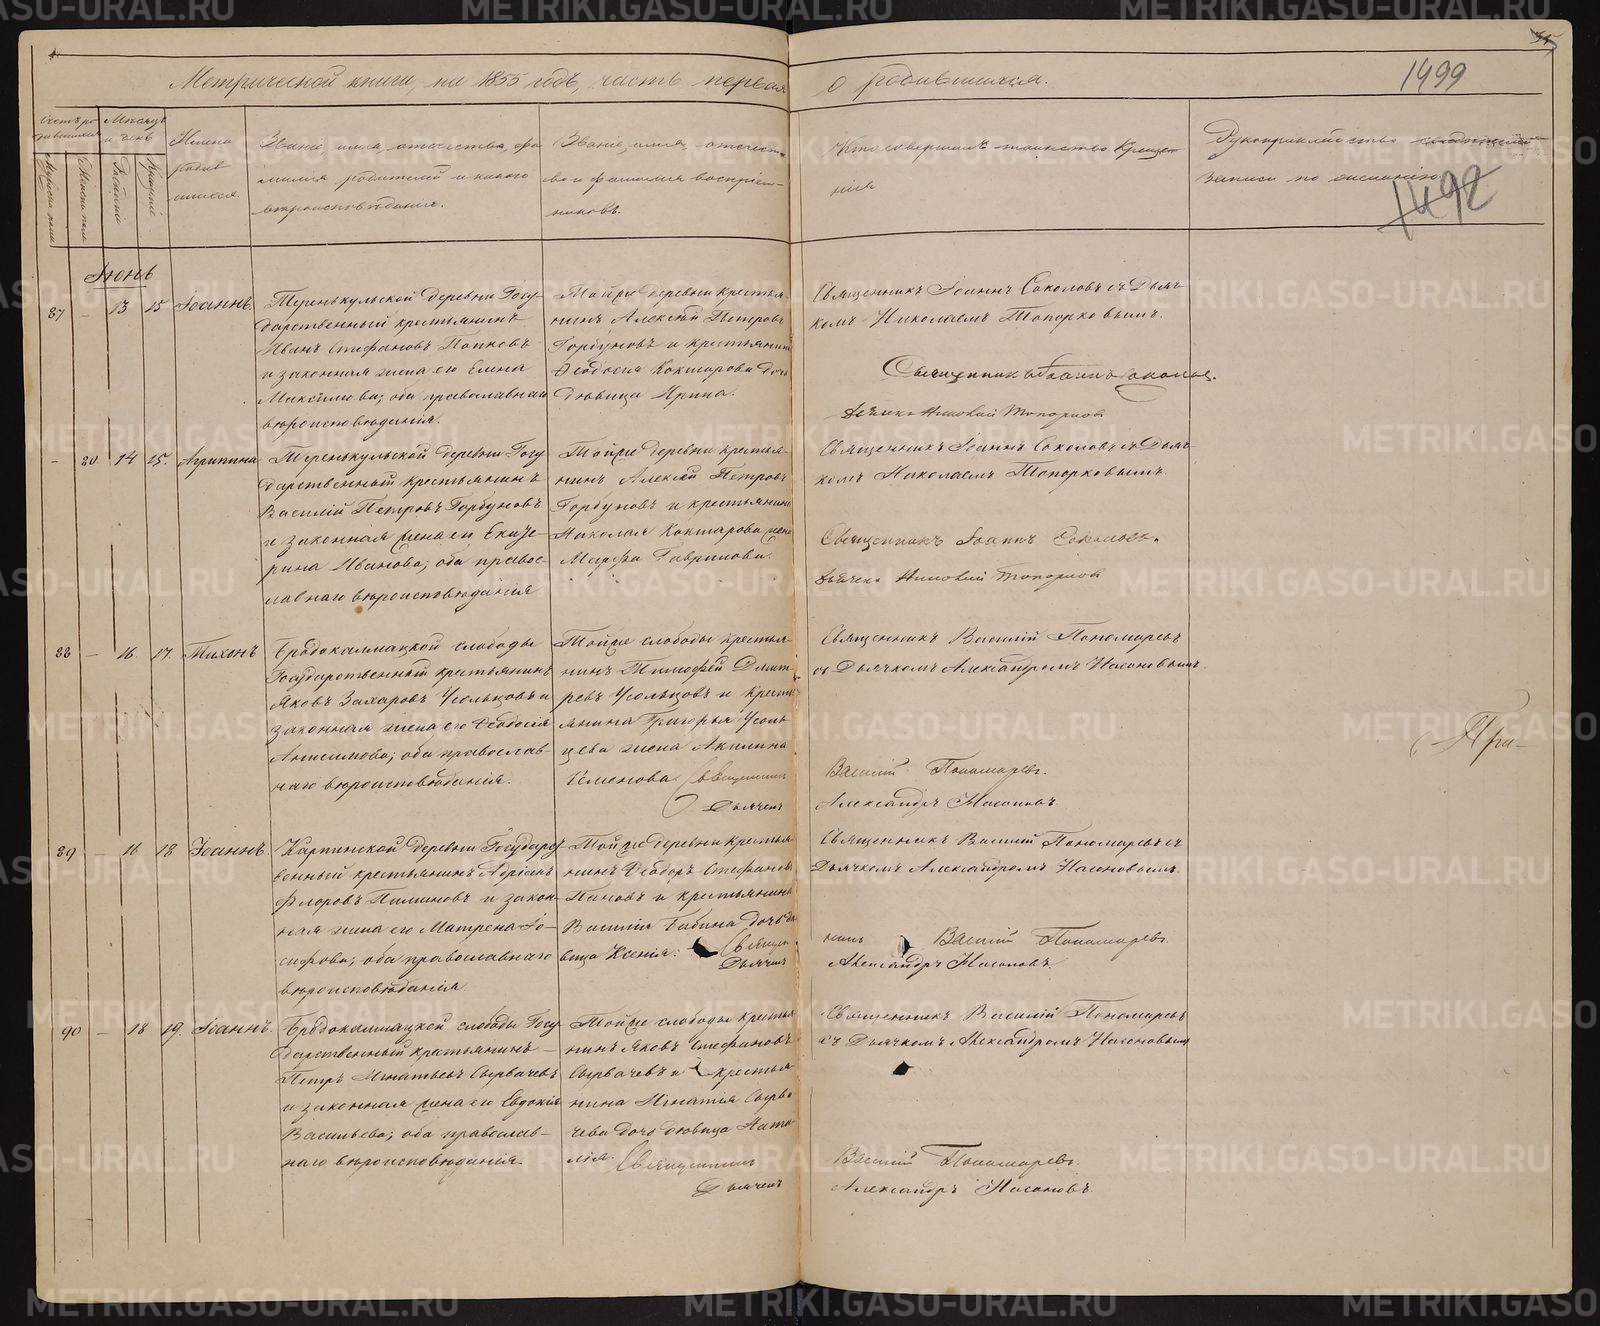 Метрической книги, на 1855 годъ, часть первая о родившихся.
1499
Счетъ родившихся
Мѣсяцъ и день
Имена родившихся.
Званіе, имя, отечество, фамилія родителей и какого вѣроисповѣданія.
Званіе, имя, отечество и фамилія воспріемниковъ.
Кто совершалъ таинство крещенія
Рукоприкладство свидѣтелей записи по желанію.
1492
Мужеска пола
Женска пола
Рожденія
Крещенія
Іюнь
87 – 13 15 Іоаннъ.
Теренькульской деревни Госу-
дарственный крестьянинъ
Иванъ Стефановъ Попковъ
и законная жена его Елена
Максимова; оба православнаго
вѣроисповѣданія.
Тойже деревни крестья-
нинъ Алексѣй Петровъ
Горбуновъ и крестьянина
Ѳеодосія Кокшарова дочь
дѣвица Ирина.
Священникъ Іоаннъ Соколовъ съ Дьяч-
комъ Николаемъ Топорковымъ.
Священникъ Іоаннъ Соколовъ.
Дьячекъ Николай Топорковъ
– 80 14 15. Агрипина
Теренькульской деревни Госу
дарственный крестьянинъ
Василій Петровъ Горбуновъ
и законная жена его Екате-
рина Иванова; оба правос-
лавнаго вѣроисповѣданія
Тойже деревни крестья-
нинъ Алексѣй Петровъ
Горбуновъ и крестьянина
Николая Кокшарова жена
Марфа Гаврилова.
Священникъ Іоаннъ Соколовъ съ Дьяч-
комъ Николаемъ Топорковымъ.
Священникъ Іоаннъ Соколовъ.
Дьячекъ Николай Топорковъ
88 – 16. 17. Тихонъ
Бродокалмацкой слободы
Государственный крестьянинъ
Яковъ Захаровъ Усольцовъ и
законная жена его Ѳеодосія
Анисимова; оба православ-
наго вѣроисповѣданія.
Тойже слободы крестья-
нинъ Тимофей Дмит-
ревъ Усольцовъ и кресть-
янина Григорья Усоль
цева жена Акилина
Семенова. Священникъ
Дьячекъ
Священникъ Василій Пономаревъ
съ Дьячкомъ Александромъ Насоновымъ.
Василій Пономаревъ.
Александръ Насоновъ.
При-
89 – 16 18 Іоаннъ.
Карпинской деревни Государс
венный крестьянинъ Адріанъ
Флоровъ Пимановъ и закон-
ная жена его Матрена Іо-
сифова; оба православнаго
вѣроисповѣданія.
Тойже деревни крестья
нинъ Ѳеодоръ Стефановъ
Пановъ и крестьянина
Василія Бабина дочь дѣ
вица Ксенія. Священ
Дьячекъ
Священникъ Василій Пономаревъ съ
Дьячкомъ Александромъ Насоновымъ.
никъ Василій Пономаревъ.
Александръ Насоновъ.
90 – 18 19. Іоаннъ.
Бродокалмацкой слободы Госу
дарственный крестьянинъ –
Петръ Игнатьевъ Сырвачевъ
и законная жена его Евдокія
Васильева; оба православ-
наго вѣроисповѣданія.
Тойже слободы крестья
нинъ Яковъ Стефановъ
Сырвачевъ и крестья
нина Игнатія Сырва
чева дочь дѣвица Ната
лія. Священникъ
Дьячекъ
Священникъ Василій Пономаревъ
съ Дьячкомъ Александромъ Насоновымъ
Василій Пономаревъ.
Александръ Насоновъ.
METRIKI.GASO-URAL.RU